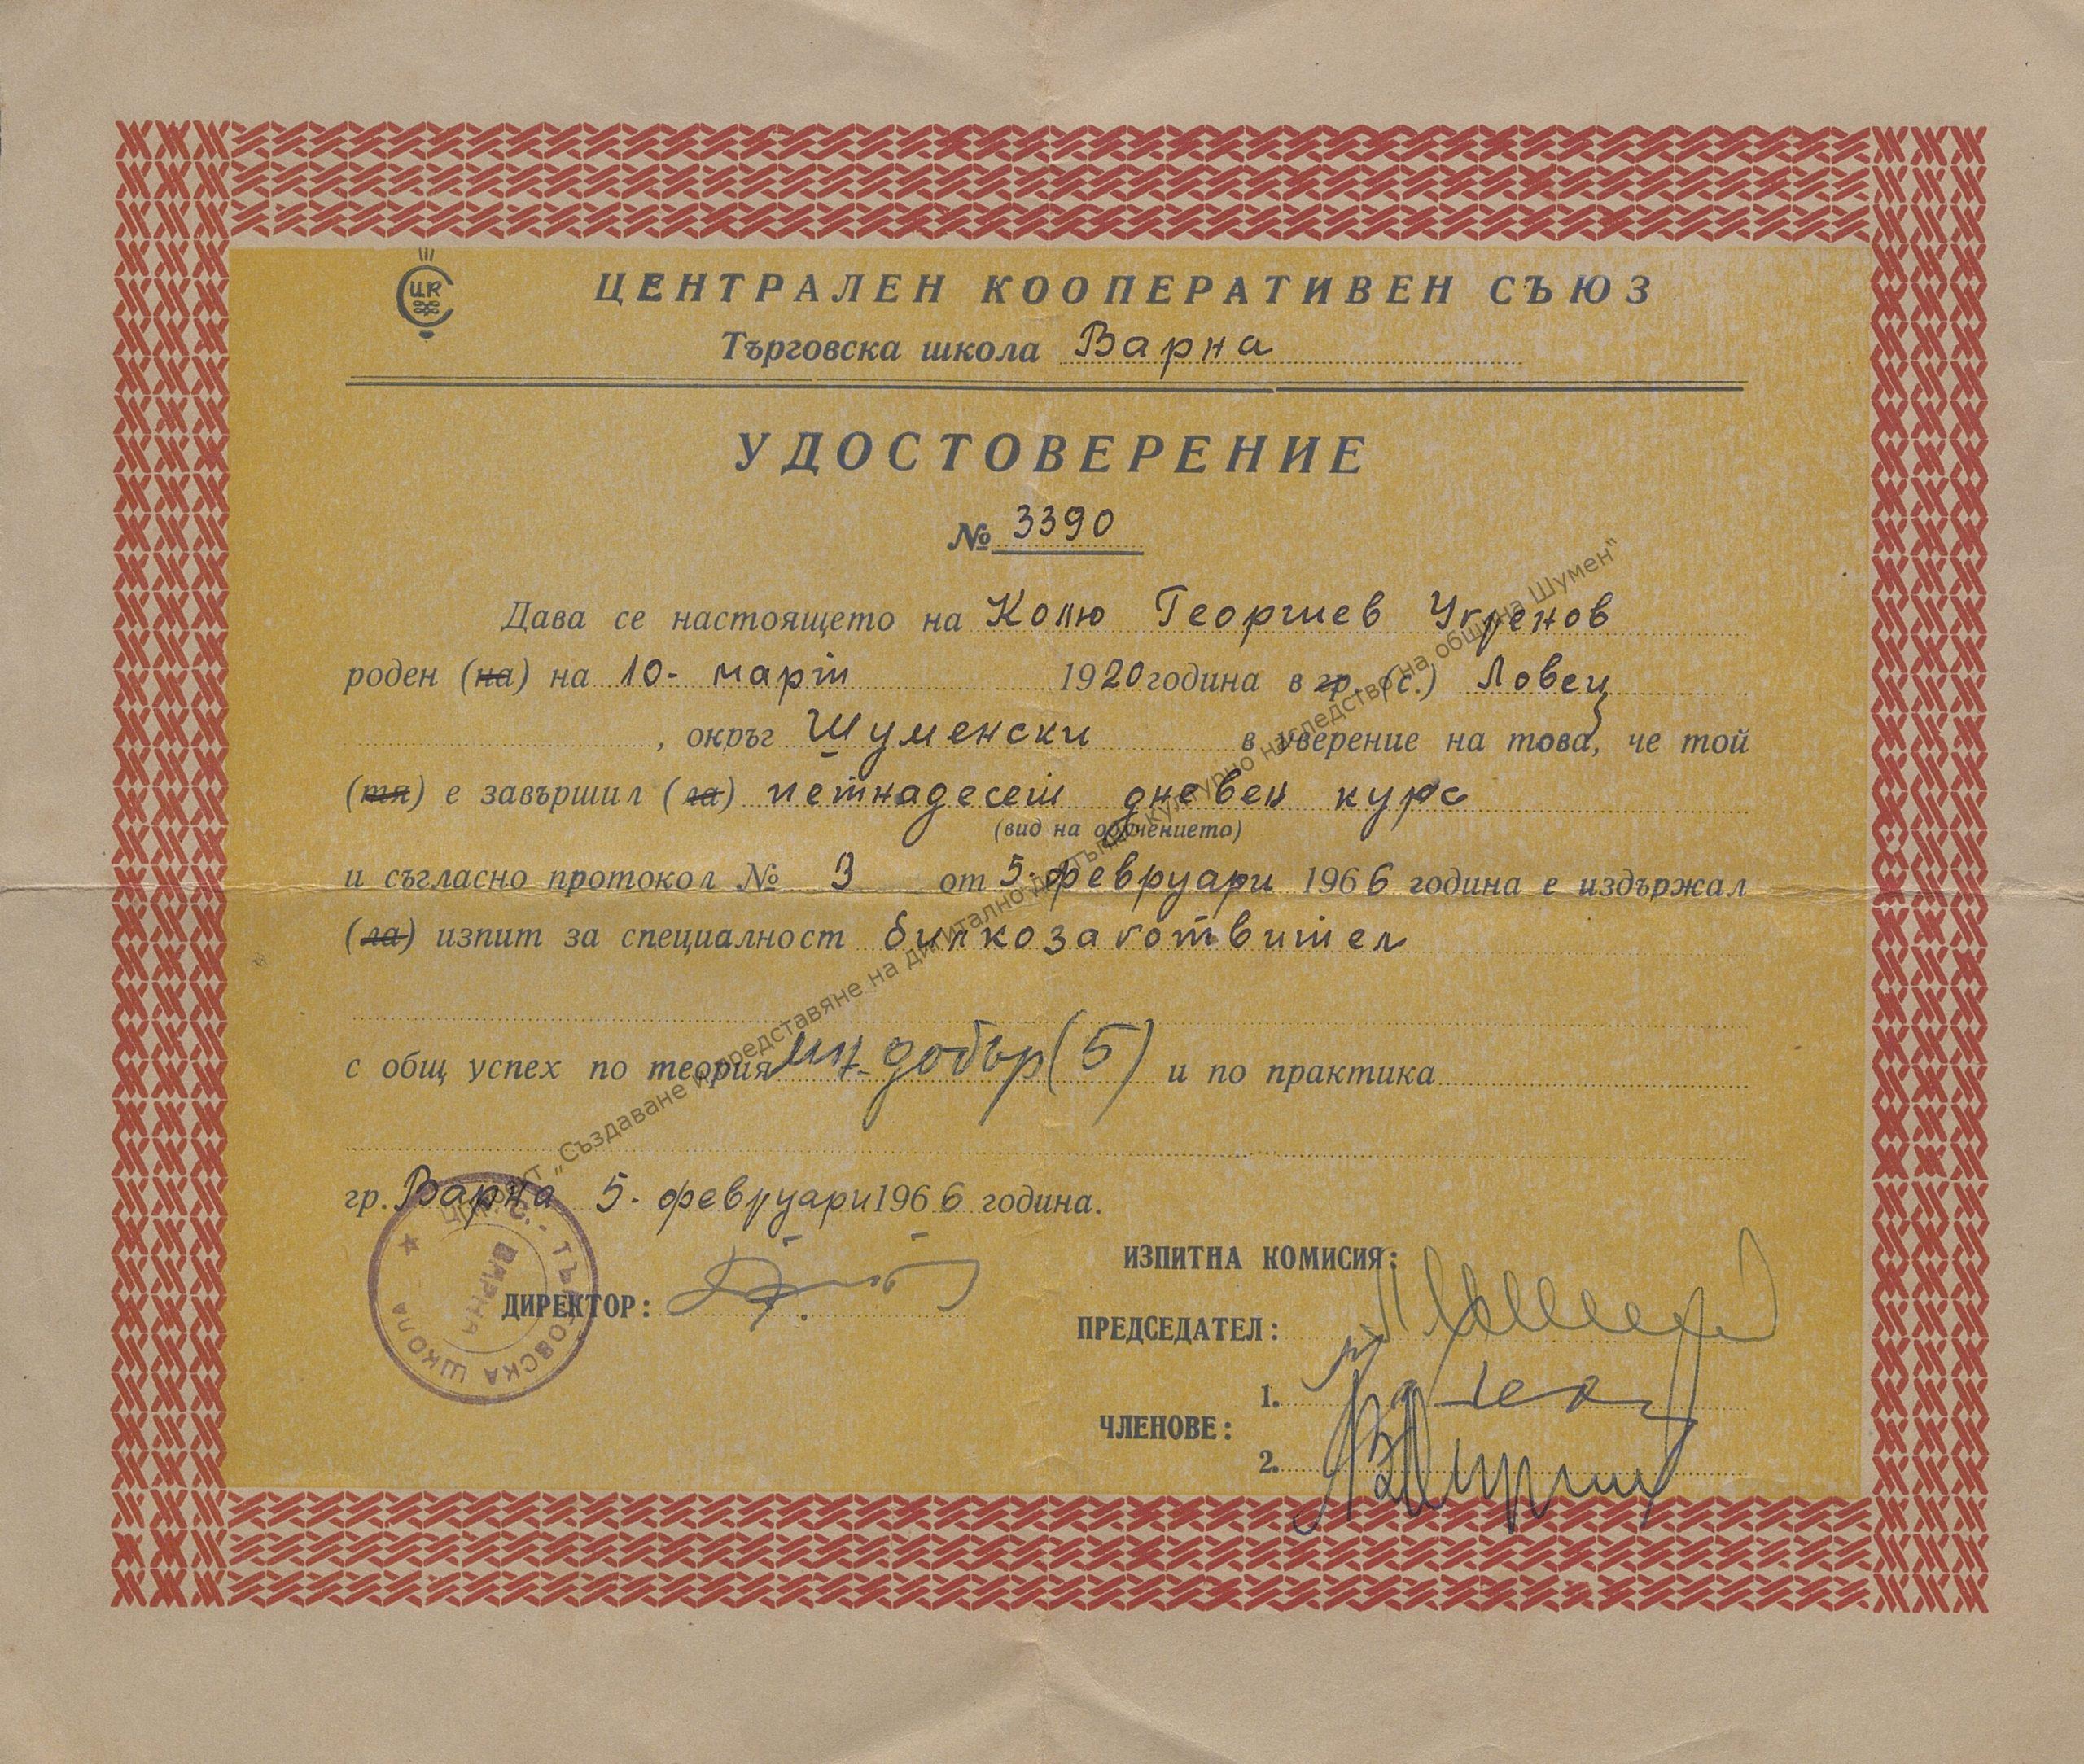 ЦЕНТРАЛЕН КООПЕРАТИВЕН СЪЮЗ
Търговска школа Варна
УДОСТОВЕРЕНИЕ
№ 3390
Дава се настоящето на Колю Георгиев Укренов
роден (на) на 10. март 1920 година в гр. (с.) Ловец
, окръг Шуменски в уверение на това, че той
(тя) е завършил (ла) петнадесет дневен курс
(вид на обучението)
и съгласно протокол № 3 от 5. февруари 1966 година е издържал
(ла) изпит за специалност билкозаготвител
с общ успех по теория мн. добър (5) и по практика
гр. Варна 5. февруари 1966 година.
ИЗПИТНА КОМИСИЯ:
ДИРЕКТОР:
ПРЕДСЕДАТЕЛ:
1.
ЧЛЕНОВЕ:
2.
ТЪРГОВСКА ШКОЛА
ВАРНА
„Създаване и представяне на дигитално достъпно културно наследство на община Шумен"